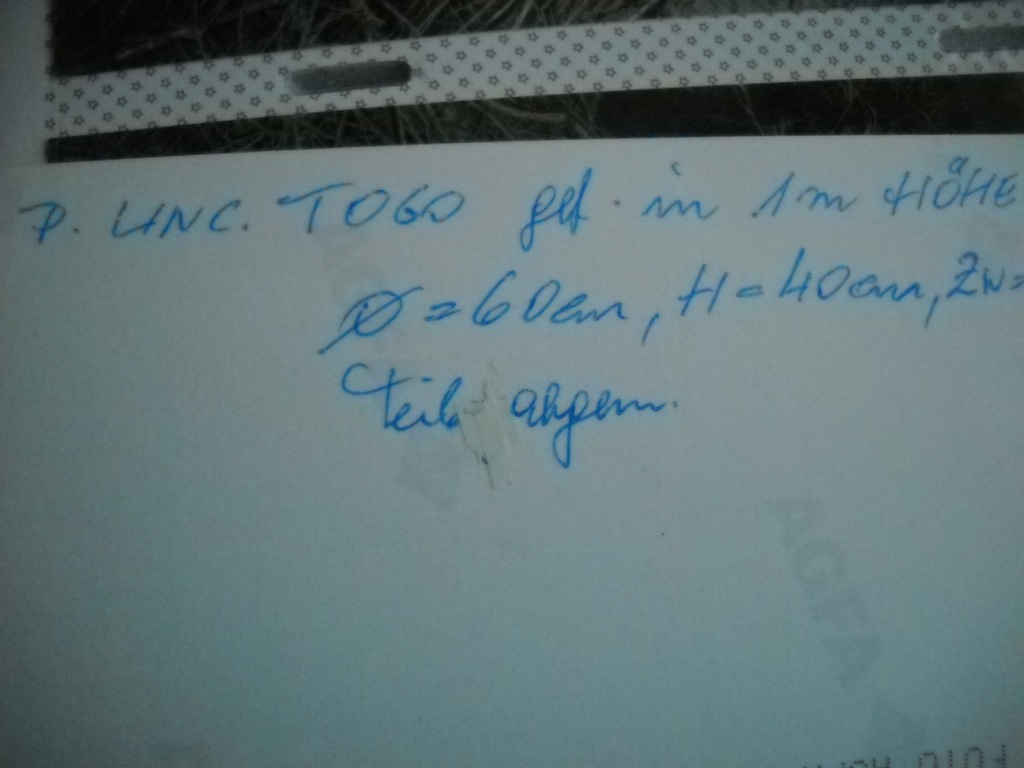 P. UNC. TOGO gef. in 1m HÖHE
Ø=60cm, H=40cm, ZW=
Teile abgem.
AGFA
FOTO